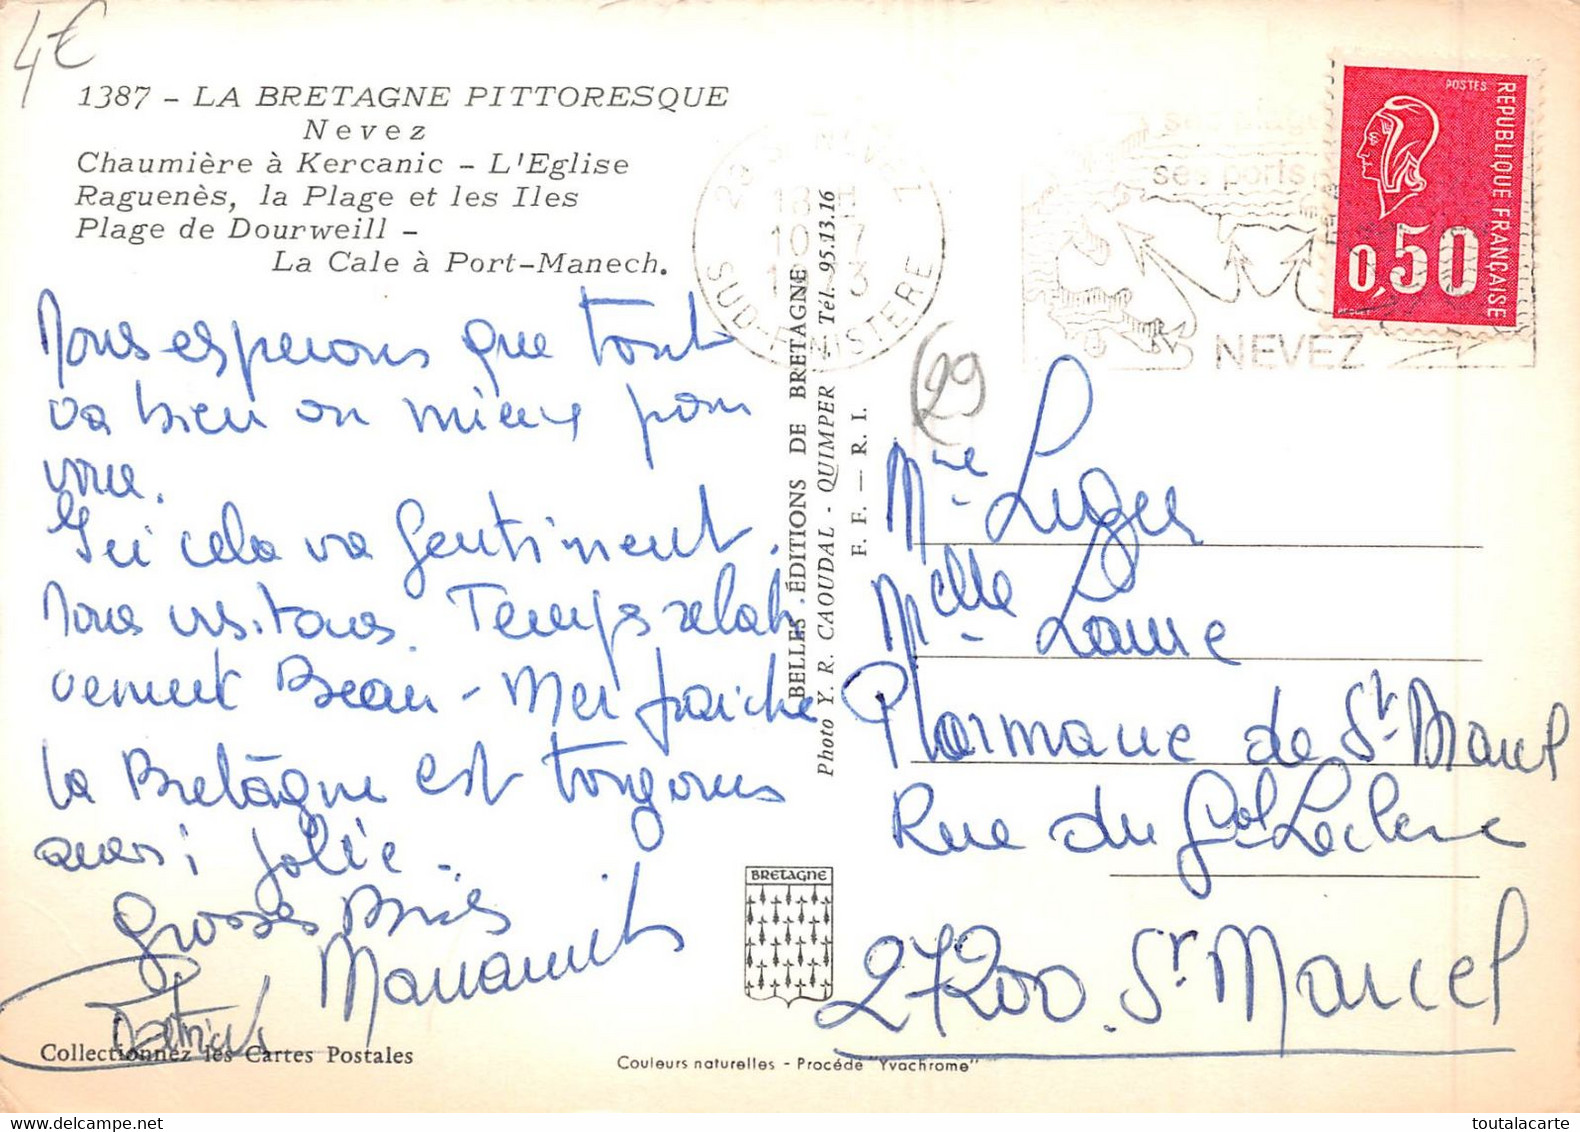 4€
1387 - LA BRETAGNE PITTORESQUE
Nevez
Chaumière à Kercanic - L'Eglise
Raguenès, la Plage et les Iles
Plage de Dourweill -
La Cale à Port-Manech.
Nous esperons que tout
va bien ou mieux pour
vous.
Ici cela va gentiment.
Nous visitons. Temps relati
vement Beau - Mer fraiche
La Bretâgne est toujours
aussi jolie.
Grosses Bises
Patrick
Collectionnez les Cartes Postales
BELLES ÉDITIONS DE BRETAGNE
Photo Y. R. CAOUDAL - QUIMPER - Tél. 95.13.16
F. F. — R. I.
BRETAGNE
Couleurs naturelles - Procédé "Yvachrome"
29 NEVEZ
18 H
10 7
1973
SUD-FINISTERE
ses plages
ses ports
NEVEZ
POSTES
REPUBLIQUE FRANÇAISE
0,50
(29
Mme Leger
Melle Laure
Pharmacie de St. Marcel
Rue du Gal Leclerc
27200. St Marcel
toutalacarte